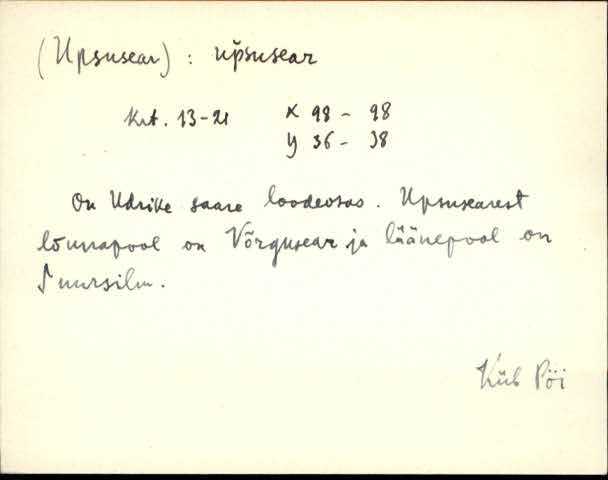 (Upsusear) : up̆susear
Krt. 13-21 x 98 - 98
y 36 - 38
On Udrike saare loodeosas. Upsusearest
lõunapool on Võrgusear ja läänepool on
Suursilm.
Küb Pöi